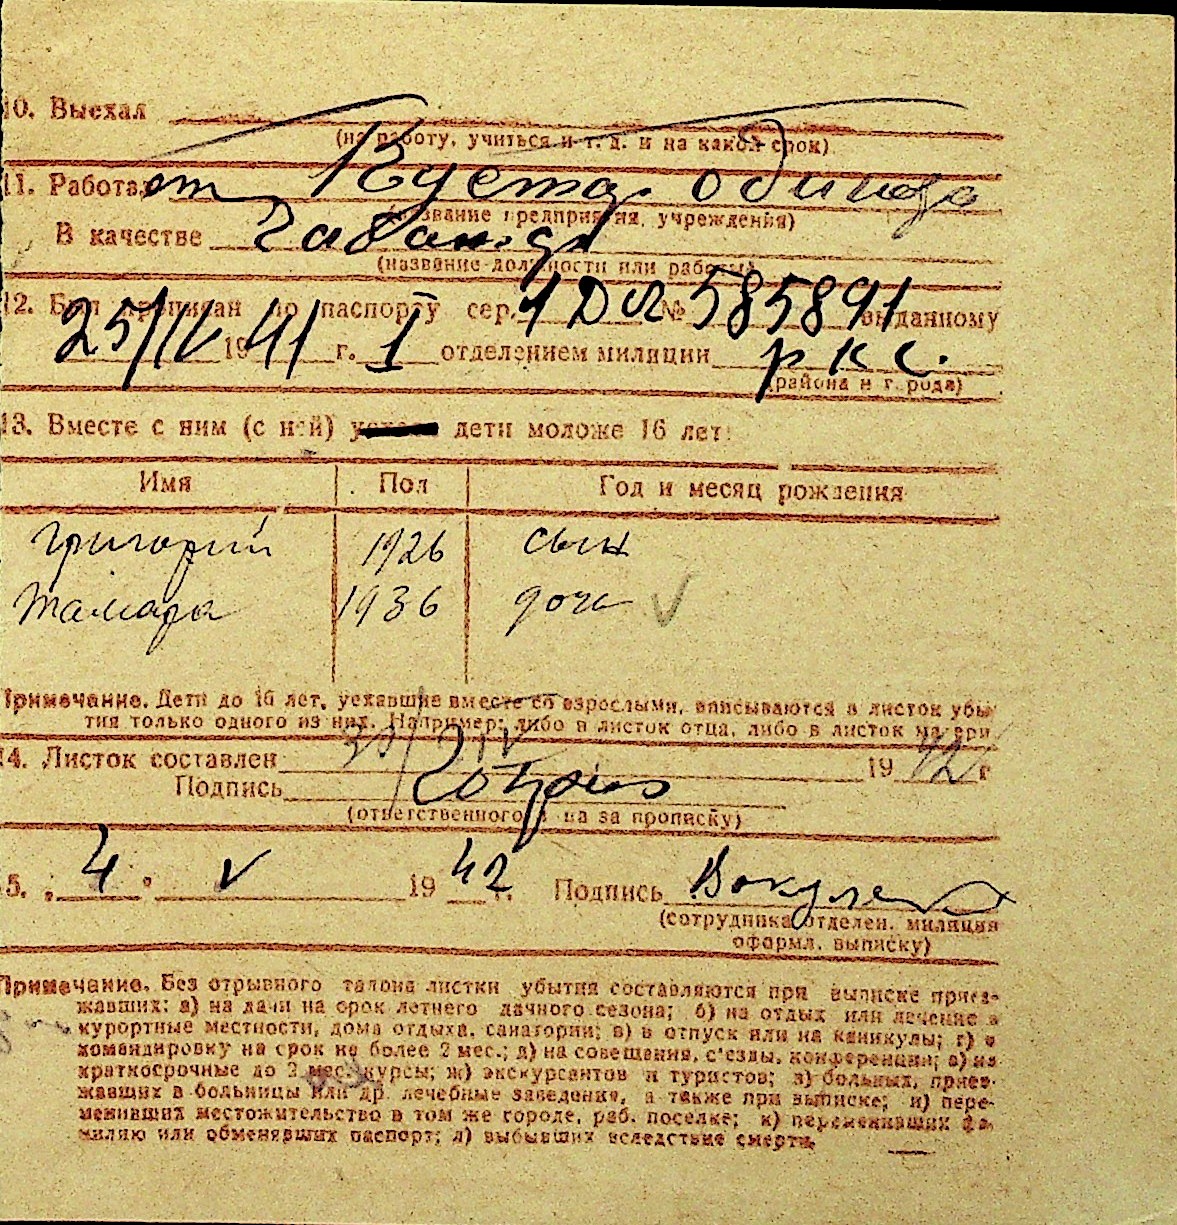 10. Выехал
(на работу, учиться и т. д. и на какой срок)
11. Работал от Куста одиноча
(название предприятия, учреждения)
В качестве
(название должности или работы)
12. Был прописан по паспорту сер. № 585891 выданному
25/IV 1941 г. 1 отделением милиции р к с.
(района и города)
13. Вместе с ним (с ней) дети моложе 16 лет:
Имя Пол Год и месяц рождения
Григорий 1926 сын
Тамара 1936 дочь
Примечание. Дети до 16 лет, уехавшие вместе со взрослыми, вписываются в листок убы-
тия только одного из них. Например: либо в листок отца, либо в листок матери
14. Листок составлен 30/IV 1942 г
Подпись
(ответственного за прописку)
5. „4" V 1942 г. Подпись Вакулен
(сотрудника отделен. милиции
оформл. выписку)
Примечание. Без отрывного талона листки убытия составляются при выписке приез-
жавших: а) на дачи на срок летнего дачного сезона; б) на отдых или лечение в
курортные местности, дома отдыха, санатории; в) в отпуск или на каникулы; г) в
командировку на срок не более 2 мес.; д) на совещания, с'езды, конференции; е) на
краткосрочные до 3 мес. курсы; ж) экскурсантов и туристов; з) больных, приез-
жавших в больницы или др. лечебные заведения, а также при выписке; и) пере-
менивших местожительство в том же городе, раб. поселке; к) переменивших фа-
милию или обменявших паспорт; л) выбывших вследствие смерти.